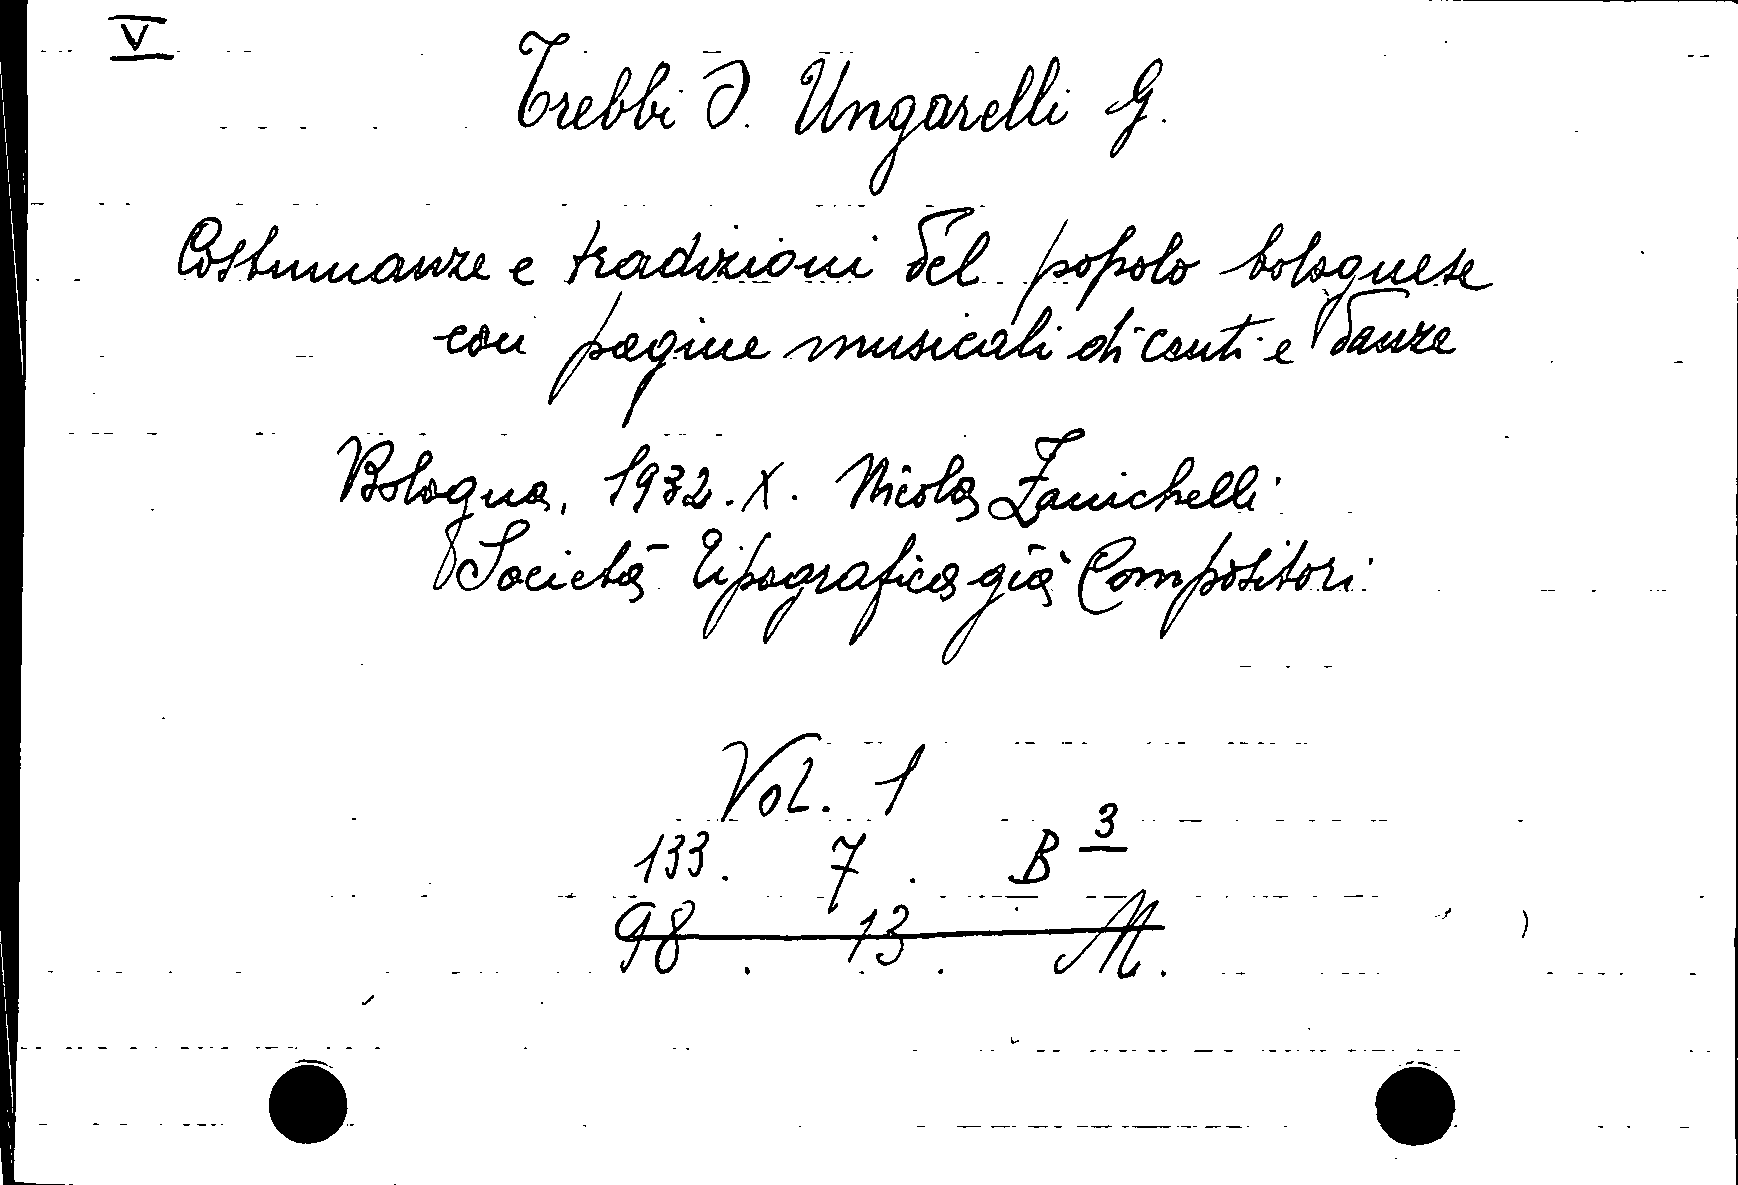 V
Trebbi O. Ungarelli G.
Costumanze e tradizioni del popolo bolognese
con pagine musicali di canti e danze
Bologna, 1932. X. Nicola Zanichelli
Società Tipografica già Compositori
Vol. 1
133. 7. B 3
98. 13. M.